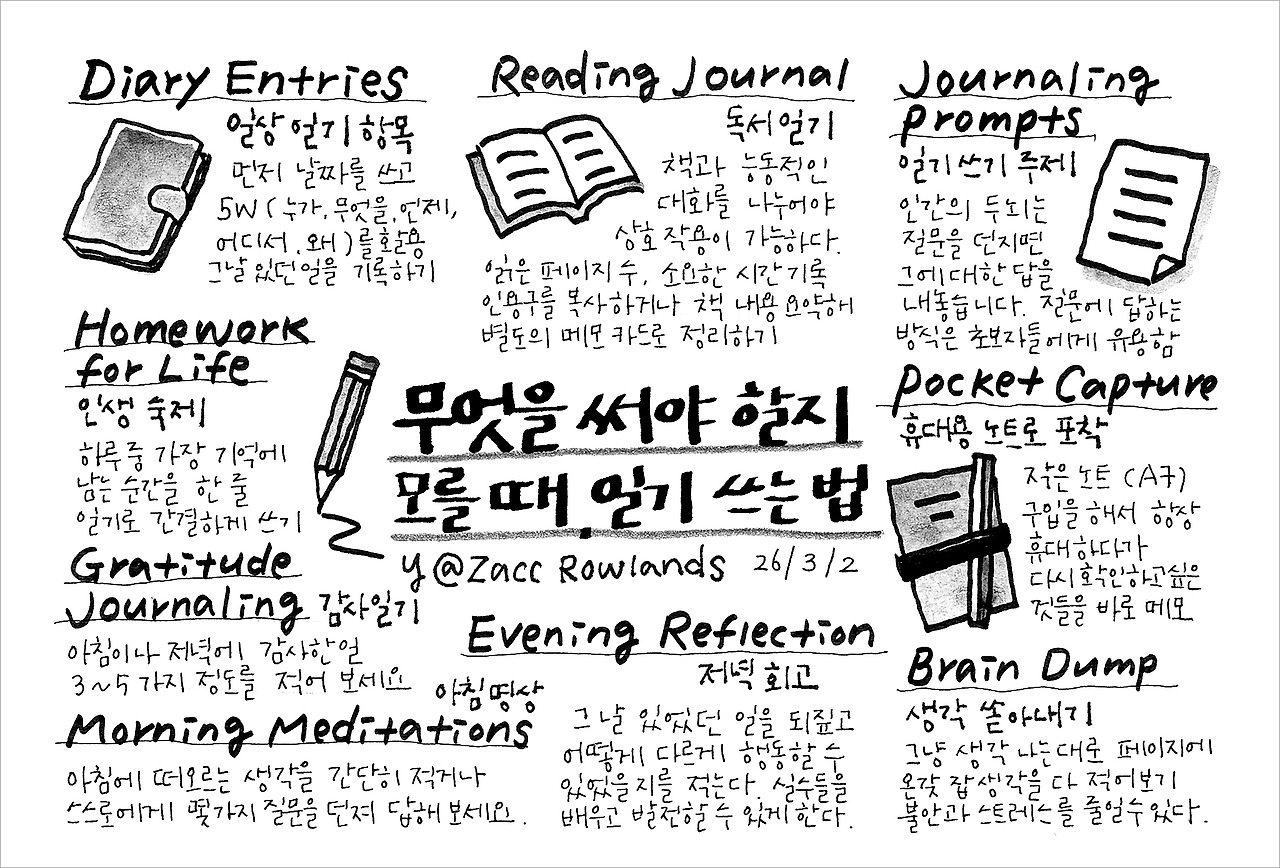 Diary Entries
일상 일기 항목
먼저 날짜를 쓰고
5W (누가, 무엇을, 언제,
어디서, 왜)를 활용
그날 있던 일을 기록하기
Homework
for Life
인생 숙제
하루 중 가장 기억에
남는 순간을 한 줄
일기로 간결하게 쓰기
Gratitude
Journaling 감사일기
아침이나 저녁에 감사한 일
3~5가지 정도를 적어 보세요
아침 명상
Morning Meditations
아침에 떠오르는 생각을 간단히 적거나
스스로에게 몇가지 질문을 던져 답해 보세요.
Reading Journal
독서 일기
책과 능동적인
대화를 나누어야
상호 작용이 가능하다.
읽은 페이지 수, 소요한 시간 기록
인용구를 복사하거나 책 내용 요약해
별도의 메모 카드로 정리하기
무엇을 써야 할지
모를 때, 일기 쓰는 법
y @Zacc Rowlands 26/3/2
Evening Reflection
저녁 회고
그날 있었던 일을 되짚고
어떻게 다르게 행동할 수
있었을지를 적는다. 실수들을
배우고 발전할 수 있게 한다.
Journaling
prompts
일기 쓰기 주제
인간의 두뇌는
질문을 던지면
그에 대한 답을
내놓습니다. 질문에 답하는
방식은 초보자들에게 유용함
Pocket Capture
휴대용 노트로 포착
작은 노트 (A7)
구입을 해서 항상
휴대하다가
다시 확인하고싶은
것들을 바로 메모
Brain Dump
생각 쏟아내기
그냥 생각 나는대로 페이지에
온갖 잡생각을 다 적어보기
불안과 스트레스를 줄일 수 있다.